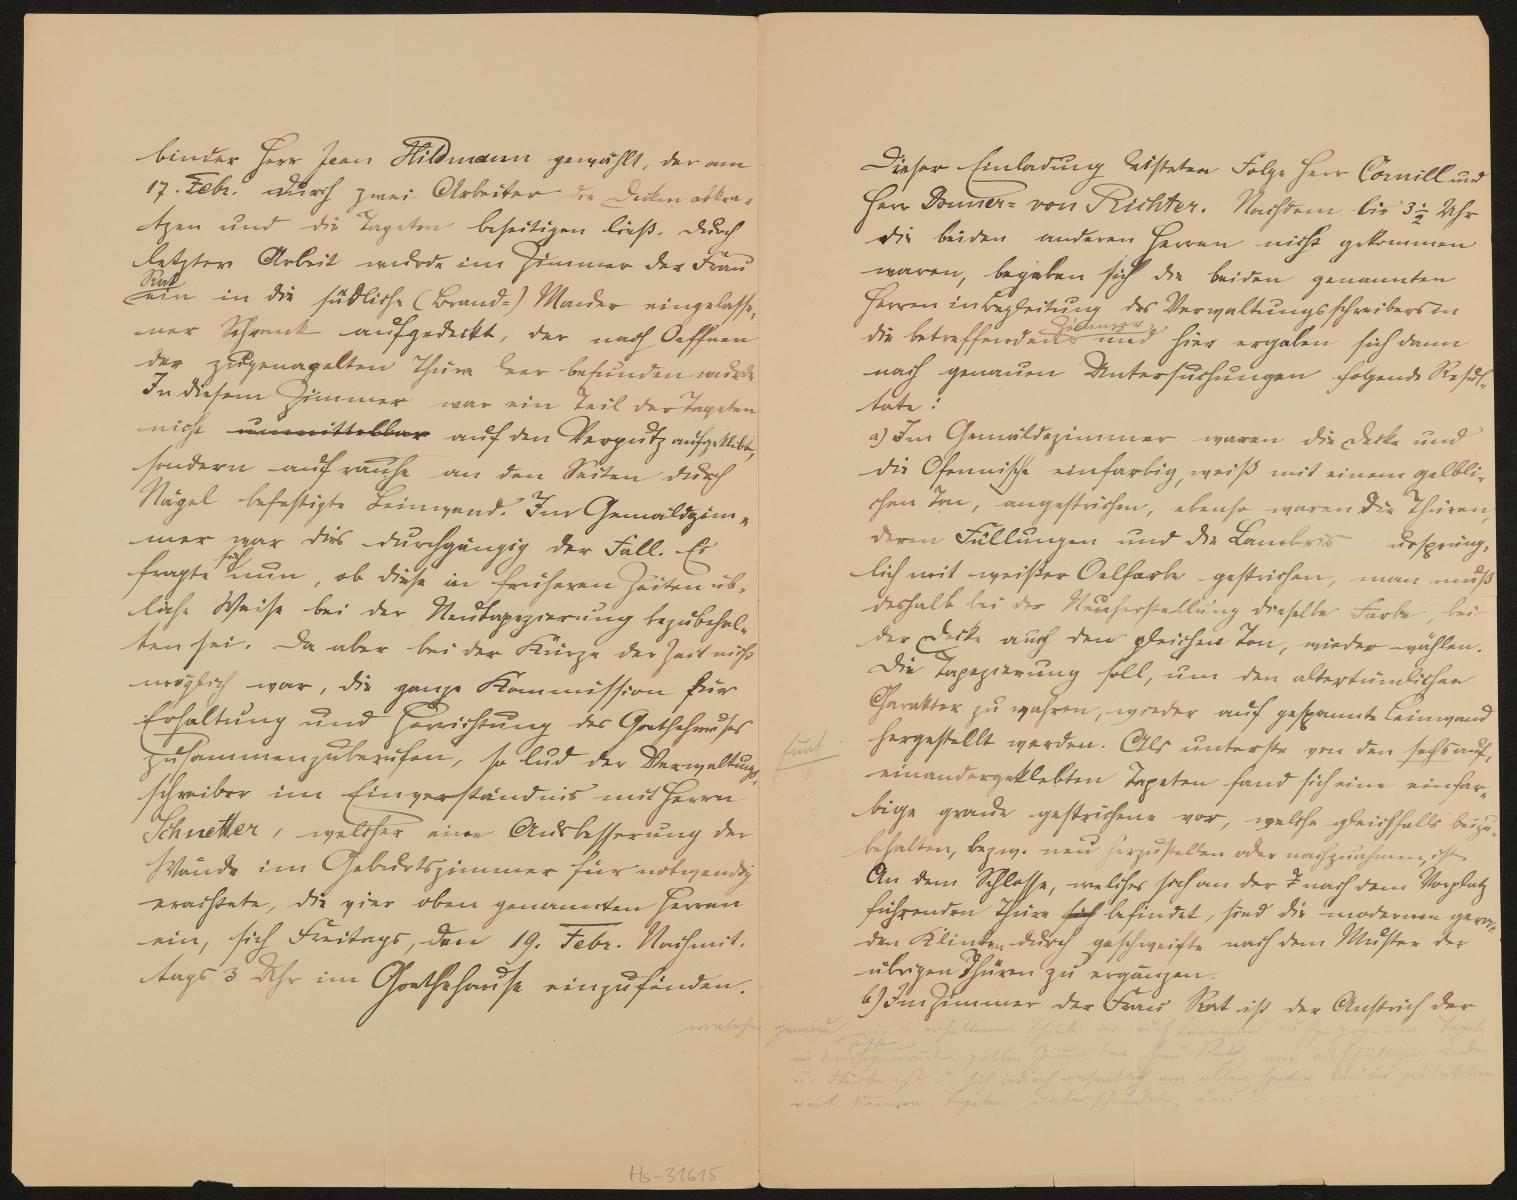 binder Herr Jean Hildmann gewählt, der am
17. Febr. durch zwei Arbeiter die Decken abkra-
tzen und die Tapeten beseitigen ließ. Durch
letztere Arbeit wurde im Zimmer der Frau
Rat
ein in die südliche (Brand-) Mauer eingelasse-
ner Schrank aufgedeckt, der nach Oeffnen
der zugenagelten Thüre leer befunden wurde
In diesem Zimmer war ein Teil der Tapeten
nicht unmittelbar auf den Verputz aufgeklebt,
sondern auf rauhe an den Seiten durch
Nägel befestigte Leinwand. Im Gemäldezim-
mer war dies durchgängig der Fall. Es
fragte sich nun, ob diese in früheren Zeiten üb-
liche Weise bei der Neutapezierung beizubehal-
ten sei. Da aber bei der Kürze der Zeit nicht
möglich war, die ganze Kommission für
Erhaltung und Herrichtung des Goethehauses
zusammenzuberufen, so lud der Verwaltungs-
schreiber im Einverständnis mit Herrn
Schnetter, welcher eine Ausbesserung der
Wände im Geburtszimmer für notwendig
erachtete, die vier oben genannten Herren
ein, sich Freitags, den 19. Febr. Nachmit-
tags 3 Uhr im Goethehause einzufinden.
Dieser Einladung leisteten Folge Herr Cornill und
Herr Donner- von Richter. Nachdem bis 3 1/2 Uhr
die beiden anderen Herren nicht gekommen
waren, begaben sich die beiden genannten
Herren in Begleitung des Verwaltungsschreibers in
Zimmer
die betreffenden und hier ergaben sich dann
nach genauen Untersuchungen folgende Resul-
tate:
a) Im Gemäldezimmer waren die Decke und
die Ofennische einfarbig, weiß mit einem gelbli-
chen Ton, angestrichen, ebenso waren die Thüren,
deren Füllungen und die Lambris ursprüng-
lich mit weißer Oelfarbe gestrichen, man muß
deshalb bei der Neuherstellung dieselbe Farbe, bei
der Decke auch den gleichen Ton, wieder wählen.
Die Tapezierung soll, um den altertümlichen
Charakter zu wahren, wieder auf gespannte Leinwand
hergestellt werden. Als unterste von den sechs auf-
fünf
einandergeklebten Tapeten fand sich eine einfar-
bige graue gestrichene vor, welche gleichfalls beizu-
behalten, bezw. neu herzustellen oder nachzuahmen, ist.
An dem Schlosse, welches sich an der nach dem Vorplatz
führenden Thüre sich befindet, sind die modernen gera-
den Klinken durch geschweifte nach dem Muster der
übrigen Thüren zu ergänzen.
b) Im Zimmer der Frau Rat ist der Anstrich der
welche genau
gelben Zimmer der Frau Rath
Tapeten unterscheidet, und
Hs-31615